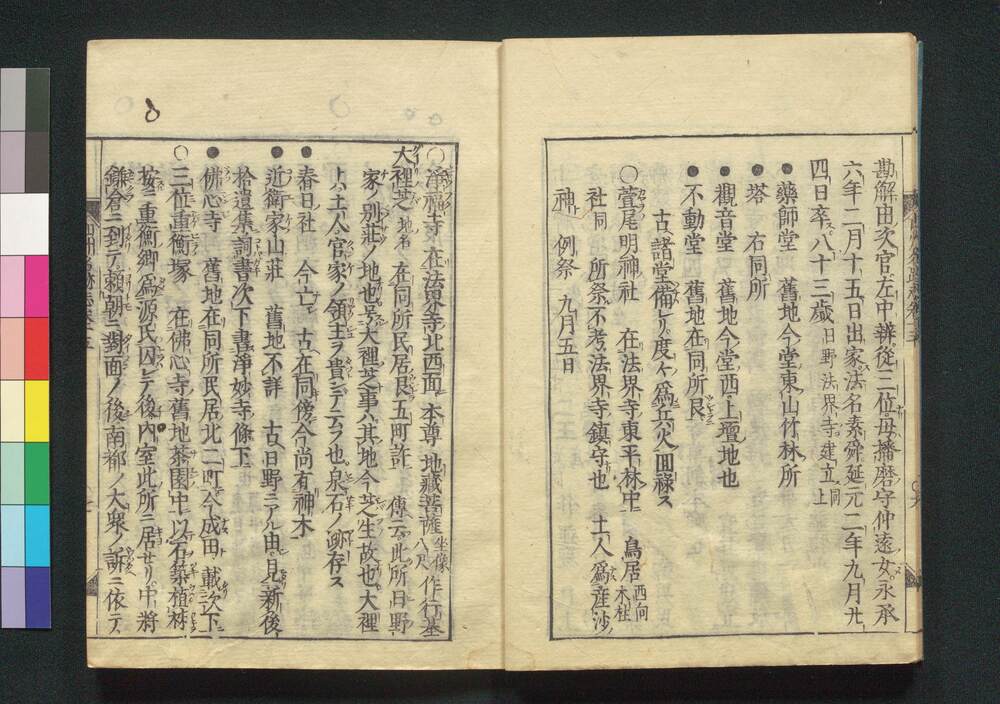 勘解由次官左中辨從三位母播磨守仲遠女永承
六年二月十五日出家法名素舜延元二年九月廿
四日卒八十三歳日野法界寺建立上同
●藥師堂 舊地今堂東山竹林所
●塔 右同所
●觀音堂 舊地今堂西上壇地也
●不動堂 舊地在同所艮
古諸堂備レリ度々爲兵火回祿ス
○萱尾明神社 在法界寺東平林中 鳥居西向木柱
社同 所祭不考法界寺鎮守也 土人爲産沙ノ
神 例祭 九月五日
○浄福寺 在法界寺北西面 本尊 地藏菩薩坐像八尺 作行基
大裡芝地名 在同所民居艮五町許 傳云此所日野
家ノ別莊ノ地也号大裡芝事ハ其地今芝生故也大裡
トハ土人官家ノ領主ヲ貴ンテ云フ也泉石ノ跡存ス
●春日社 今亡 古在同傍今尚有神木
●近衛家山莊 舊地不詳 古日野ニアル由見新後
拾遺集詞書次下書淨妙寺條下
●佛心寺 舊地在同所民居北二町今成田 載次下
○三位重衡塚 在佛心寺舊地茶園中以石築植柹
按 重衡卿爲源氏囚レテ後内室此所ニ居セリ中將
鎌倉ニ到テ頼朝ニ對面ノ後南都ノ大衆ノ訴ニ依テ